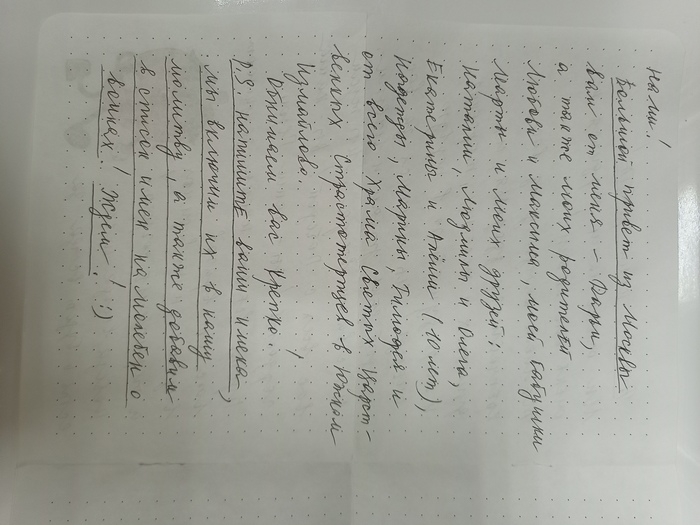 нами!
Большой привет из Москвы
вам от меня – Дарьи,
а также моих родителей
Любови и Максима, моей бабушки
Марты и моих друзей:
Наталии, Людмилы и Олега,
Екатерины и Алёши (10 лет),
Надежды, Марины, Тимофея и
от всего Храма Святых Царст-
венных Страстотерпцев в Южном
Измайлово.
Обнимаем вас крепко!
P.S напишите ваши имена,
мы включим их в нашу
молитву, а также добавим
в список имен на молебен о
воинах! Ждём! :)